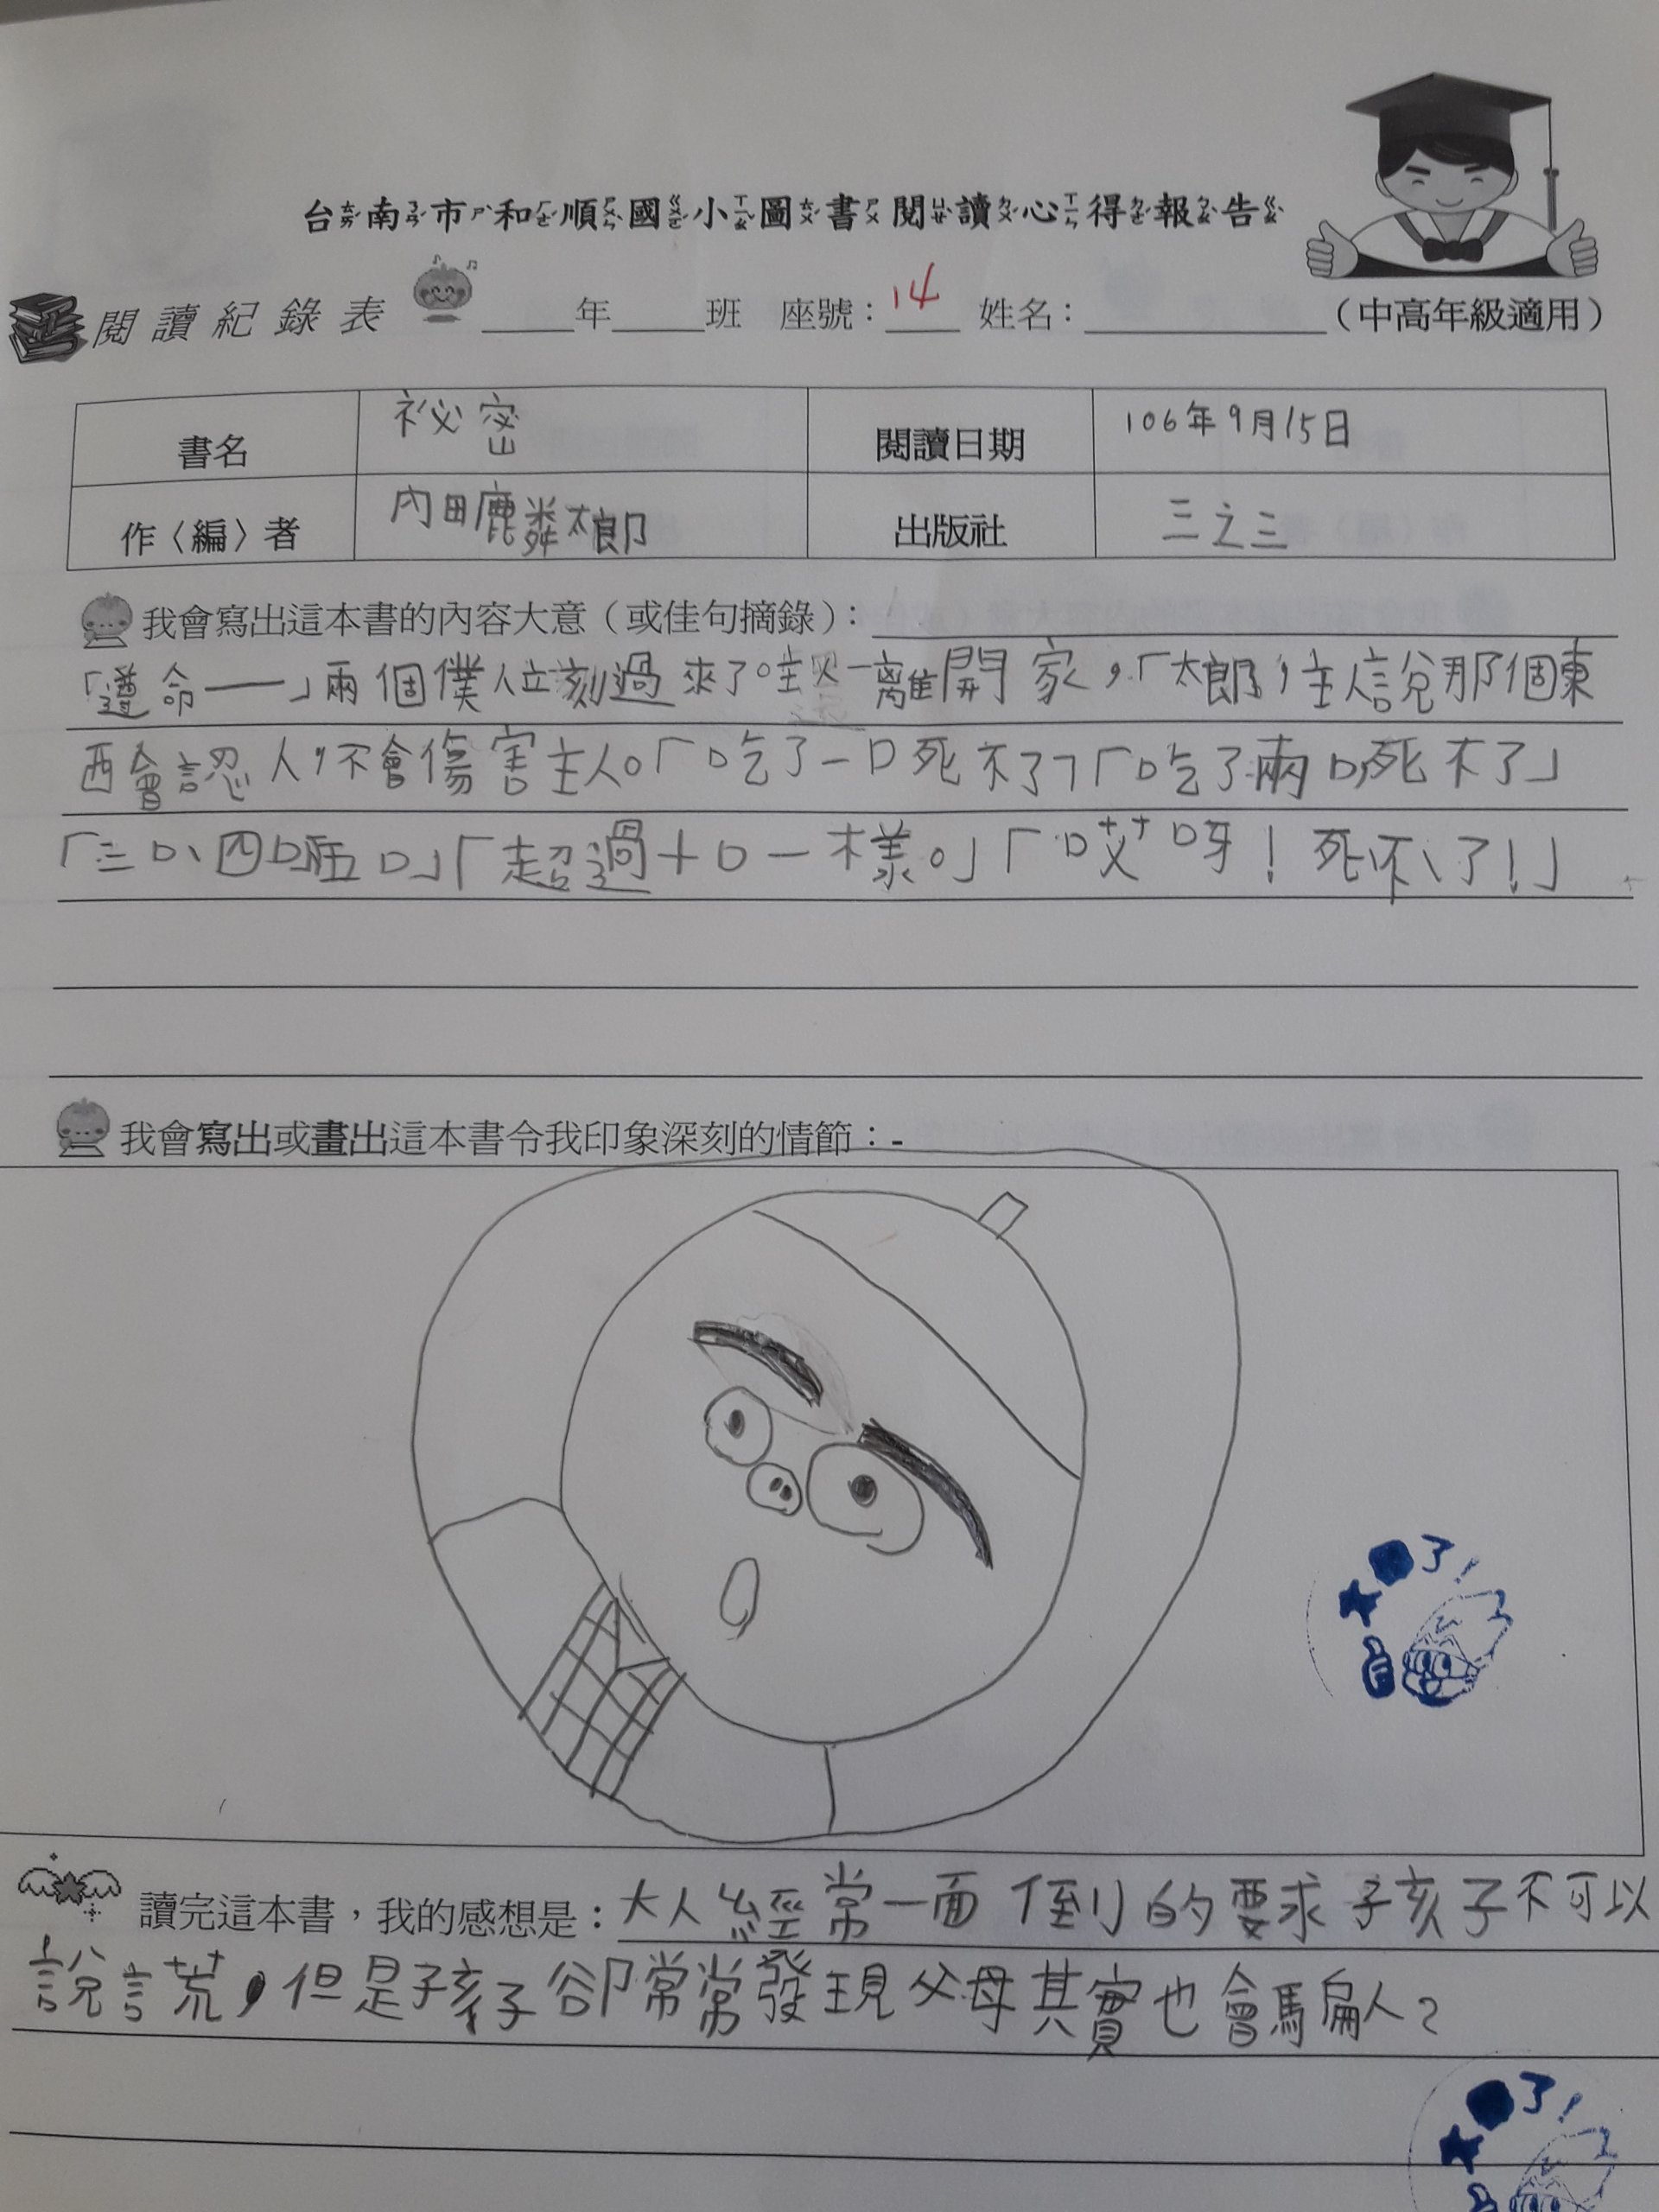 台南市和順國小圖書閱讀心得報告
閱讀紀錄表 ____年____班 座號：14 姓名：__________（中高年級適用）
書名 祕密 閱讀日期 106年9月15日
作〈編〉者 內田麟太郎 出版社 三之三
我會寫出這本書的內容大意（或佳句摘錄）：
「遵命——」兩個僕人立刻過來了。 一離開家，「太郎，主人說那個東
西會認人，不會傷害主人。「吃了一口死不了」「吃了兩口死不了」
「三口、四口五口」「超過十口一樣。」「哎呀！死不了！」
我會寫出或畫出這本書令我印象深刻的情節：-
了！
讀完這本書，我的感想是：大人經常一面倒的要求孩子不可以
說謊，但是孩子卻常常發現父母其實也會騙人?
了！